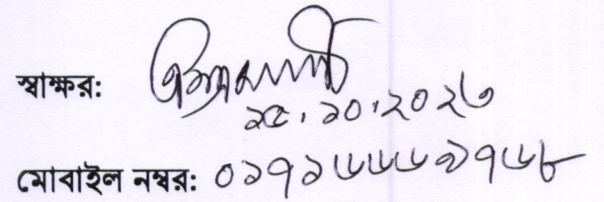 স্বাক্ষর:
১৫.১০.২০২৩
মোবাইল নম্বর: ০১৭১৬৬৬৯৭৬৮